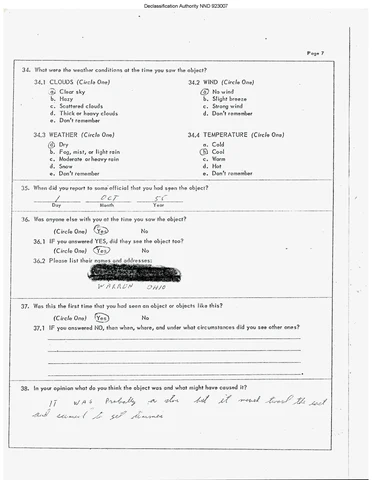 Declassification Authority NND 923007
Page 7
34. What were the weather conditions at the time you saw the object?
34.1 CLOUDS (Circle One)
a. Clear sky
b. Hazy
c. Scattered clouds
d. Thick or heavy clouds
e. Don't remember
34.2 WIND (Circle One)
a. No wind
b. Slight breeze
c. Strong wind
d. Don't remember
34.3 WEATHER (Circle One)
a. Dry
b. Fog, mist, or light rain
c. Moderate or heavy rain
d. Snow
e. Don't remember
34.4 TEMPERATURE (Circle One)
a. Cold
b. Cool
c. Warm
d. Hot
e. Don't remember
35. When did you report to some official that you had seen the object?
1 OCT 55
Day Month Year
36. Was anyone else with you at the time you saw the object?
(Circle One) Yes No
36.1 IF you answered YES, did they see the object too?
(Circle One) Yes No
36.2 Please list their names and addresses:
WARREN OHIO
37. Was this the first time that you had seen an object or objects like this?
(Circle One) Yes No
37.1 IF you answered NO, then when, where, and under what circumstances did you see other ones?
38. In your opinion what do you think the object was and what might have caused it?
IT WAS Probably a star but it moved toward the east
and seemed to get dimmer